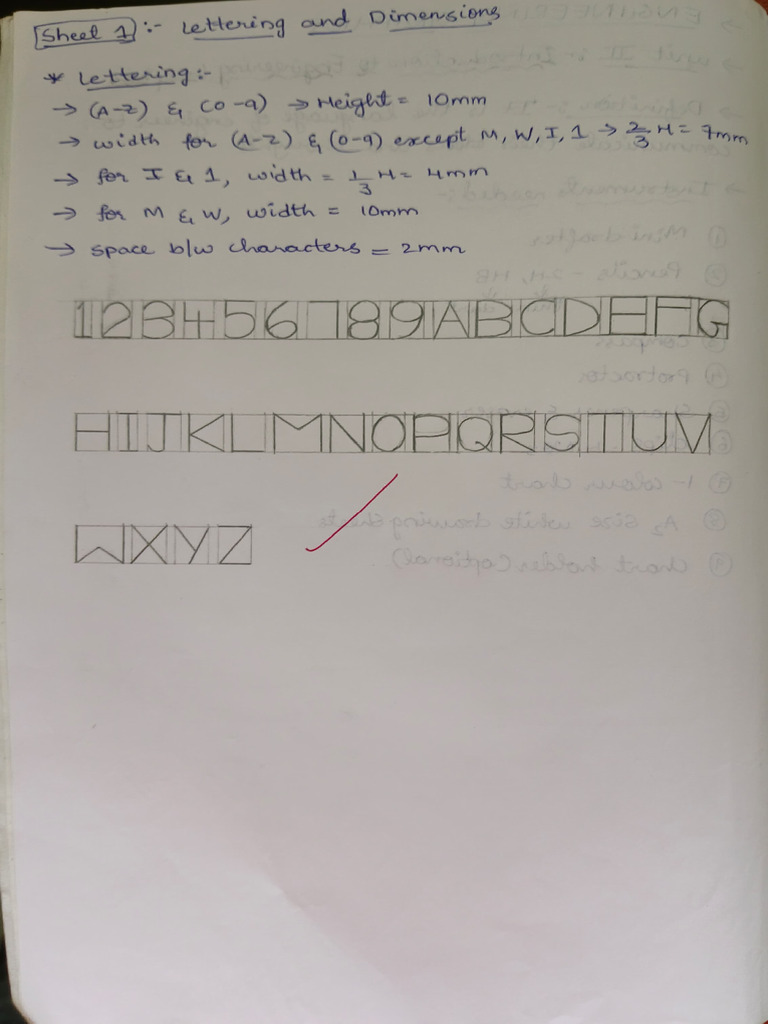 Sheet 1 :- Lettering and Dimensions
* Lettering :-
→ (A-Z) & (0-9) → Height = 10mm
→ width for (A-Z) & (0-9) except M, W, I, 1 → 2/3 H = 7mm
→ for I & 1, width = 1/3 H = 4mm
→ for M & W, width = 10mm
→ space b/w characters = 2mm
123456789ABCDEFG
HIJKLMNOPQRSTUV
WXYZ